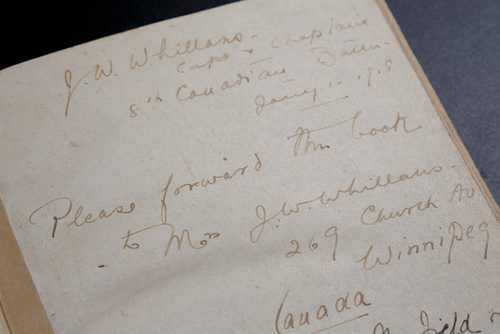 J. W. Whillans.
Capt & Chaplain
8th Canadian Battn.
Jany 1. 1918
Please forward this book
to Mrs J. W. Whillans.
269 Church Av
Winnipeg
Canada
Field